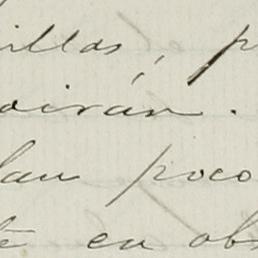 illas, p
oirán.
lan poco
te en obs